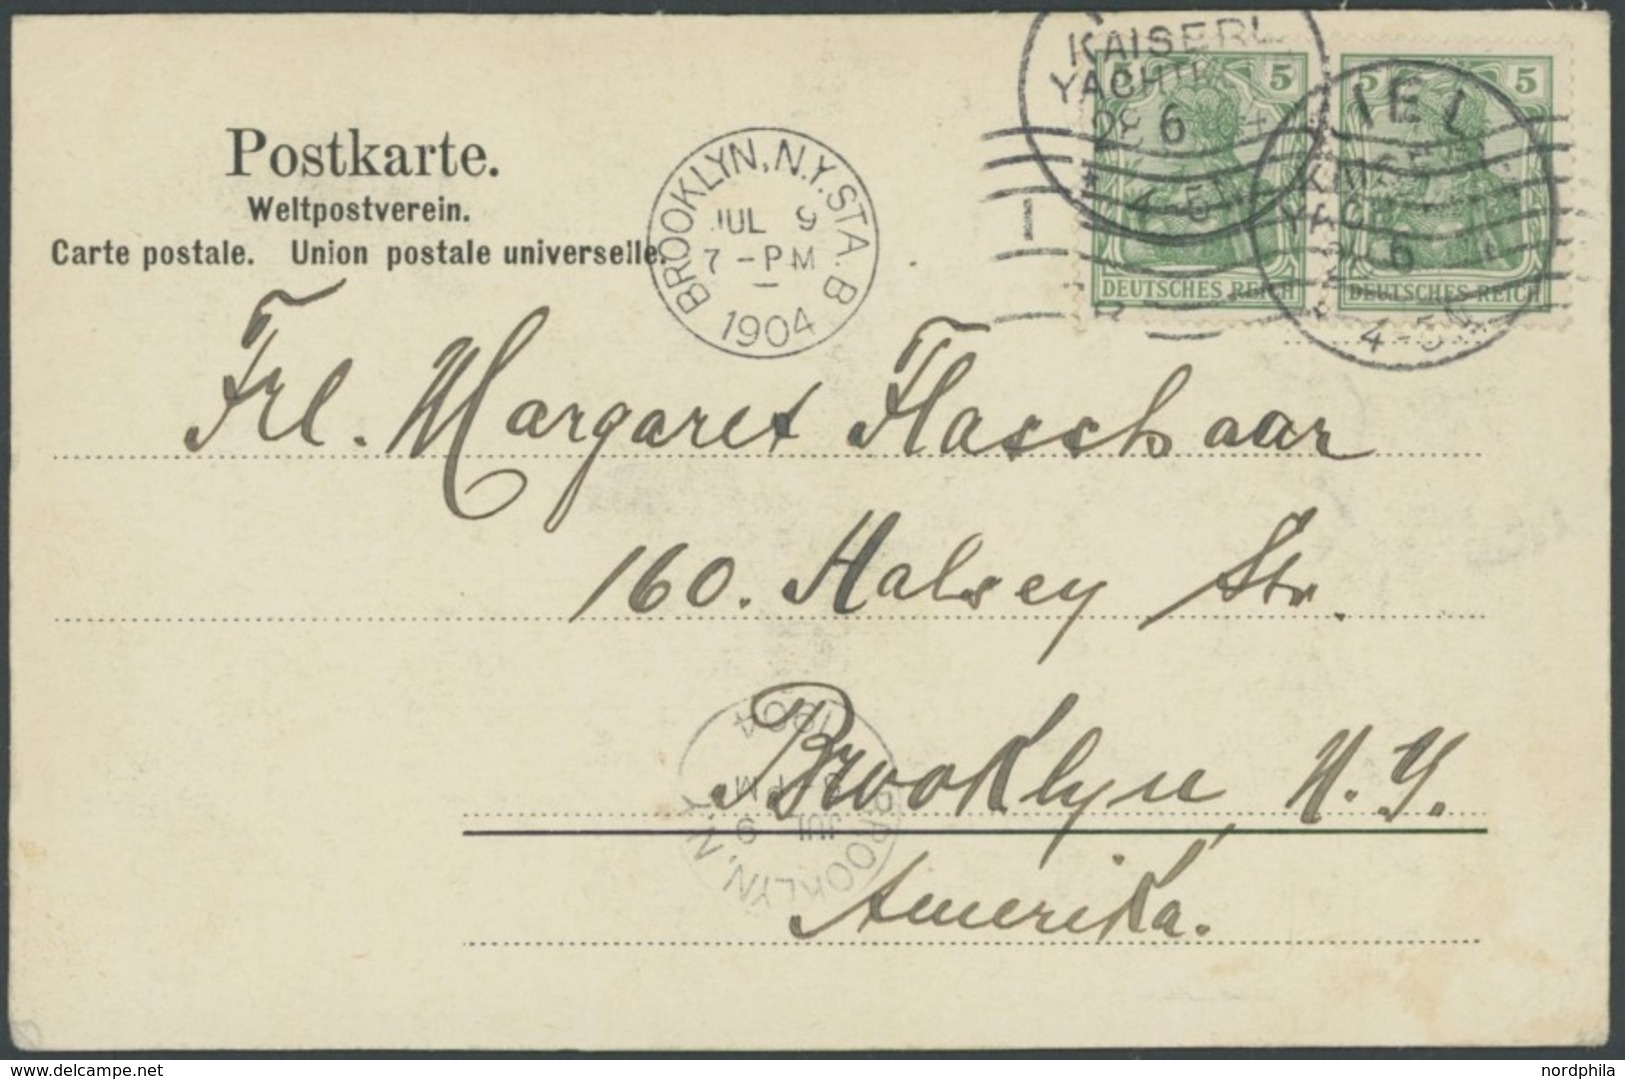 Postkarte.
Weltpostverein.
Carte postale. Union postale universelle.
BROOKLYN, N.Y. STA. B
JUL 9
7-PM
1904
KAISERL.
6
4-5
6
5 5
5 5
DEUTSCHES REICH
DEUTSCHES REICH
Frl. Margaret Flasschaar
160. Halsey Str.
Brooklyn N. Y.
Amerika.
BROOKLYN, N.Y.
JUL 9
PM
1904
delcampe.net
nordphila